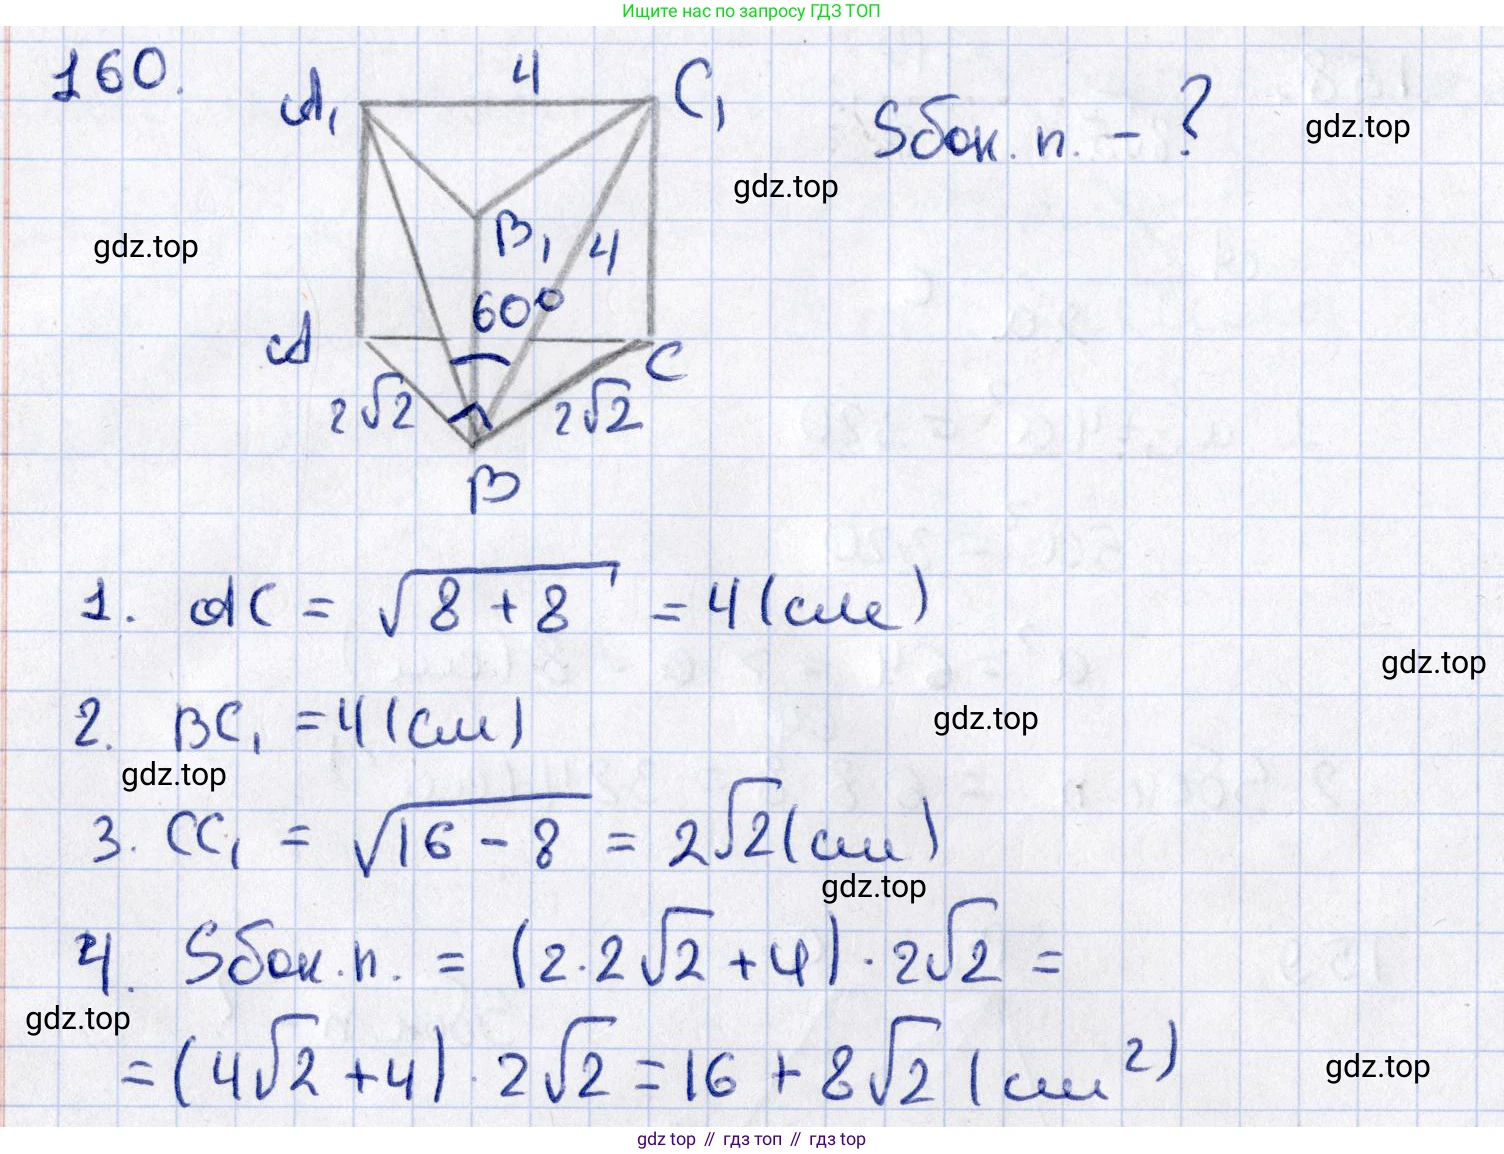 Ищите нас по запросу ГДЗ ТОП
160.
A₁ 4 C₁
Sбок. п. - ?
gdz.top
gdz.top
gdz.top
B₁ 4
60°
A C
2√2 2√2
B
1. AC = √(8 + 8) = 4 (см)
gdz.top
2. BC₁ = 4 (см)
gdz.top
gdz.top
3. CC₁ = √(16 - 8) = 2√2 (см)
gdz.top
4. Sбок. п. = (2·2√2 + 4) · 2√2 =
gdz.top
= (4√2 + 4) · 2√2 = 16 + 8√2 (см²)
gdz.top
gdz top // гдз топ // гдз top